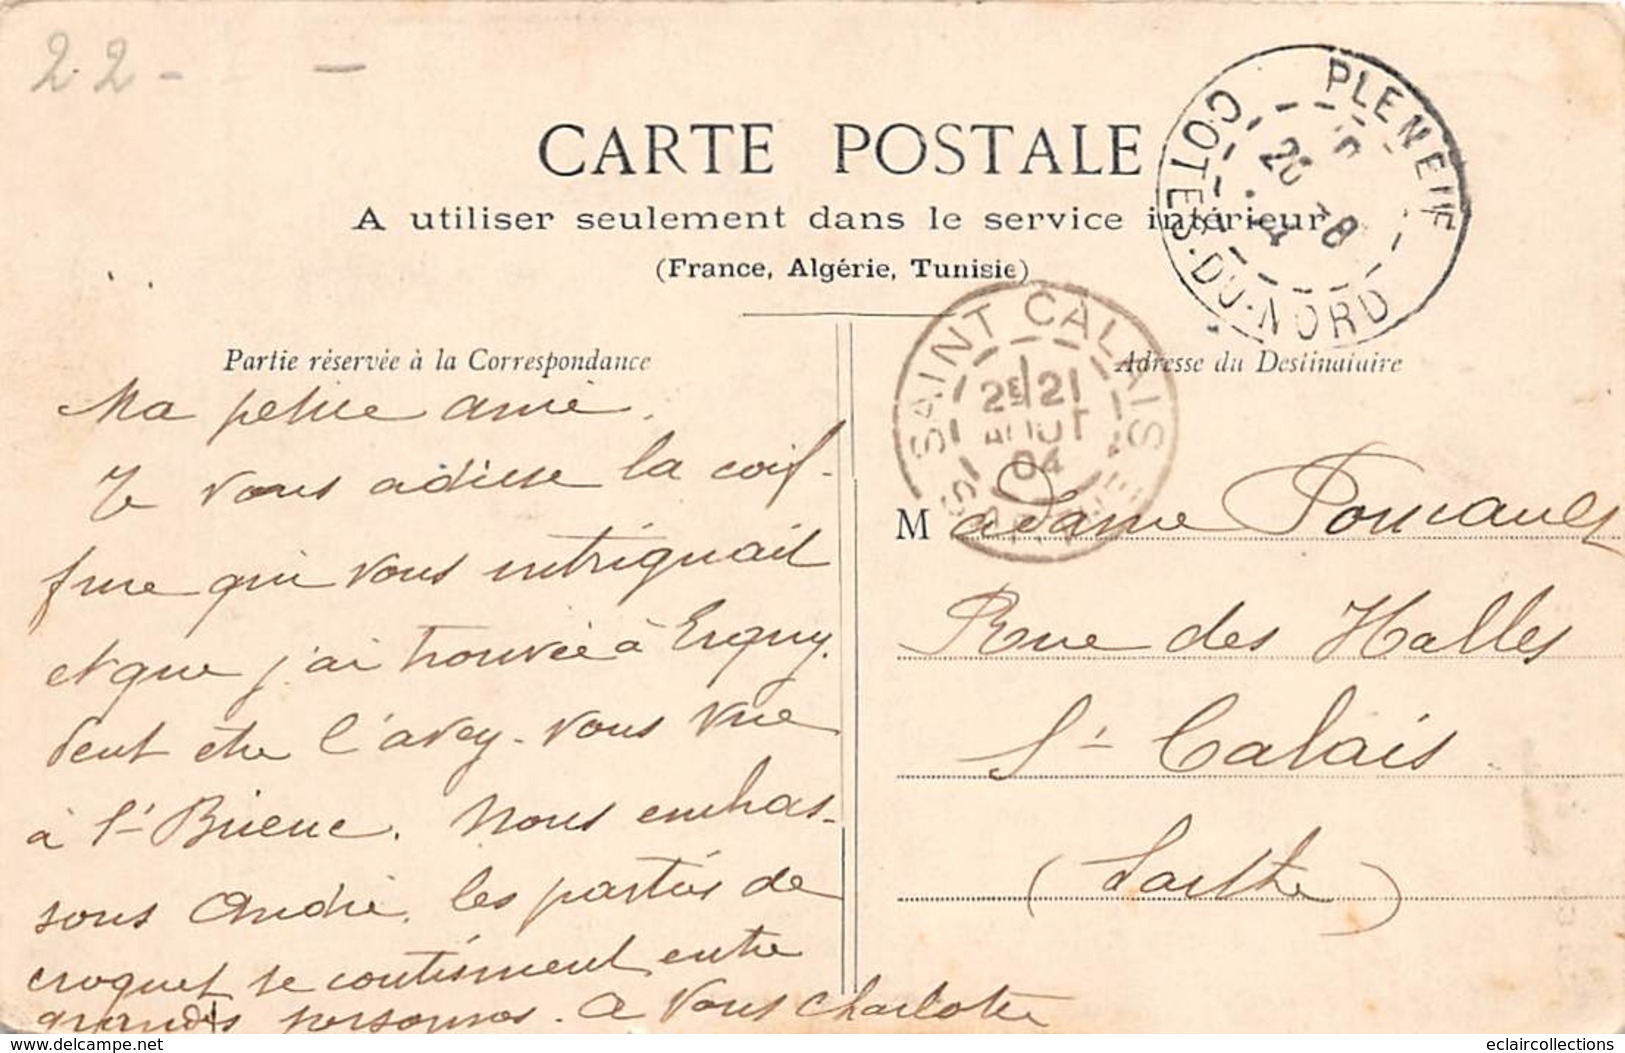 22 -
CARTE POSTALE
A utiliser seulement dans le service intérieur
(France, Algérie, Tunisie)
PLENEUF
COTES-DU-NORD
20 -8
SAINT CALAIS
2E 21
AOUT
04
SARTHE
Partie réservée à la Correspondance
Ma petite amie,
Je vous adresse la coif-
fure qui vous intriguait
et que j'ai trouvée à Erquy.
Peut etre l'avez-vous vue
à St Brieuc. Nous embras-
sons André. les parties de
croquet se continuent entre
grandes personnes. A vous Charlotte
Adresse du Destinataire
Madame
Rue des Halles
St Calais
(Sarthe)
eclaircollections